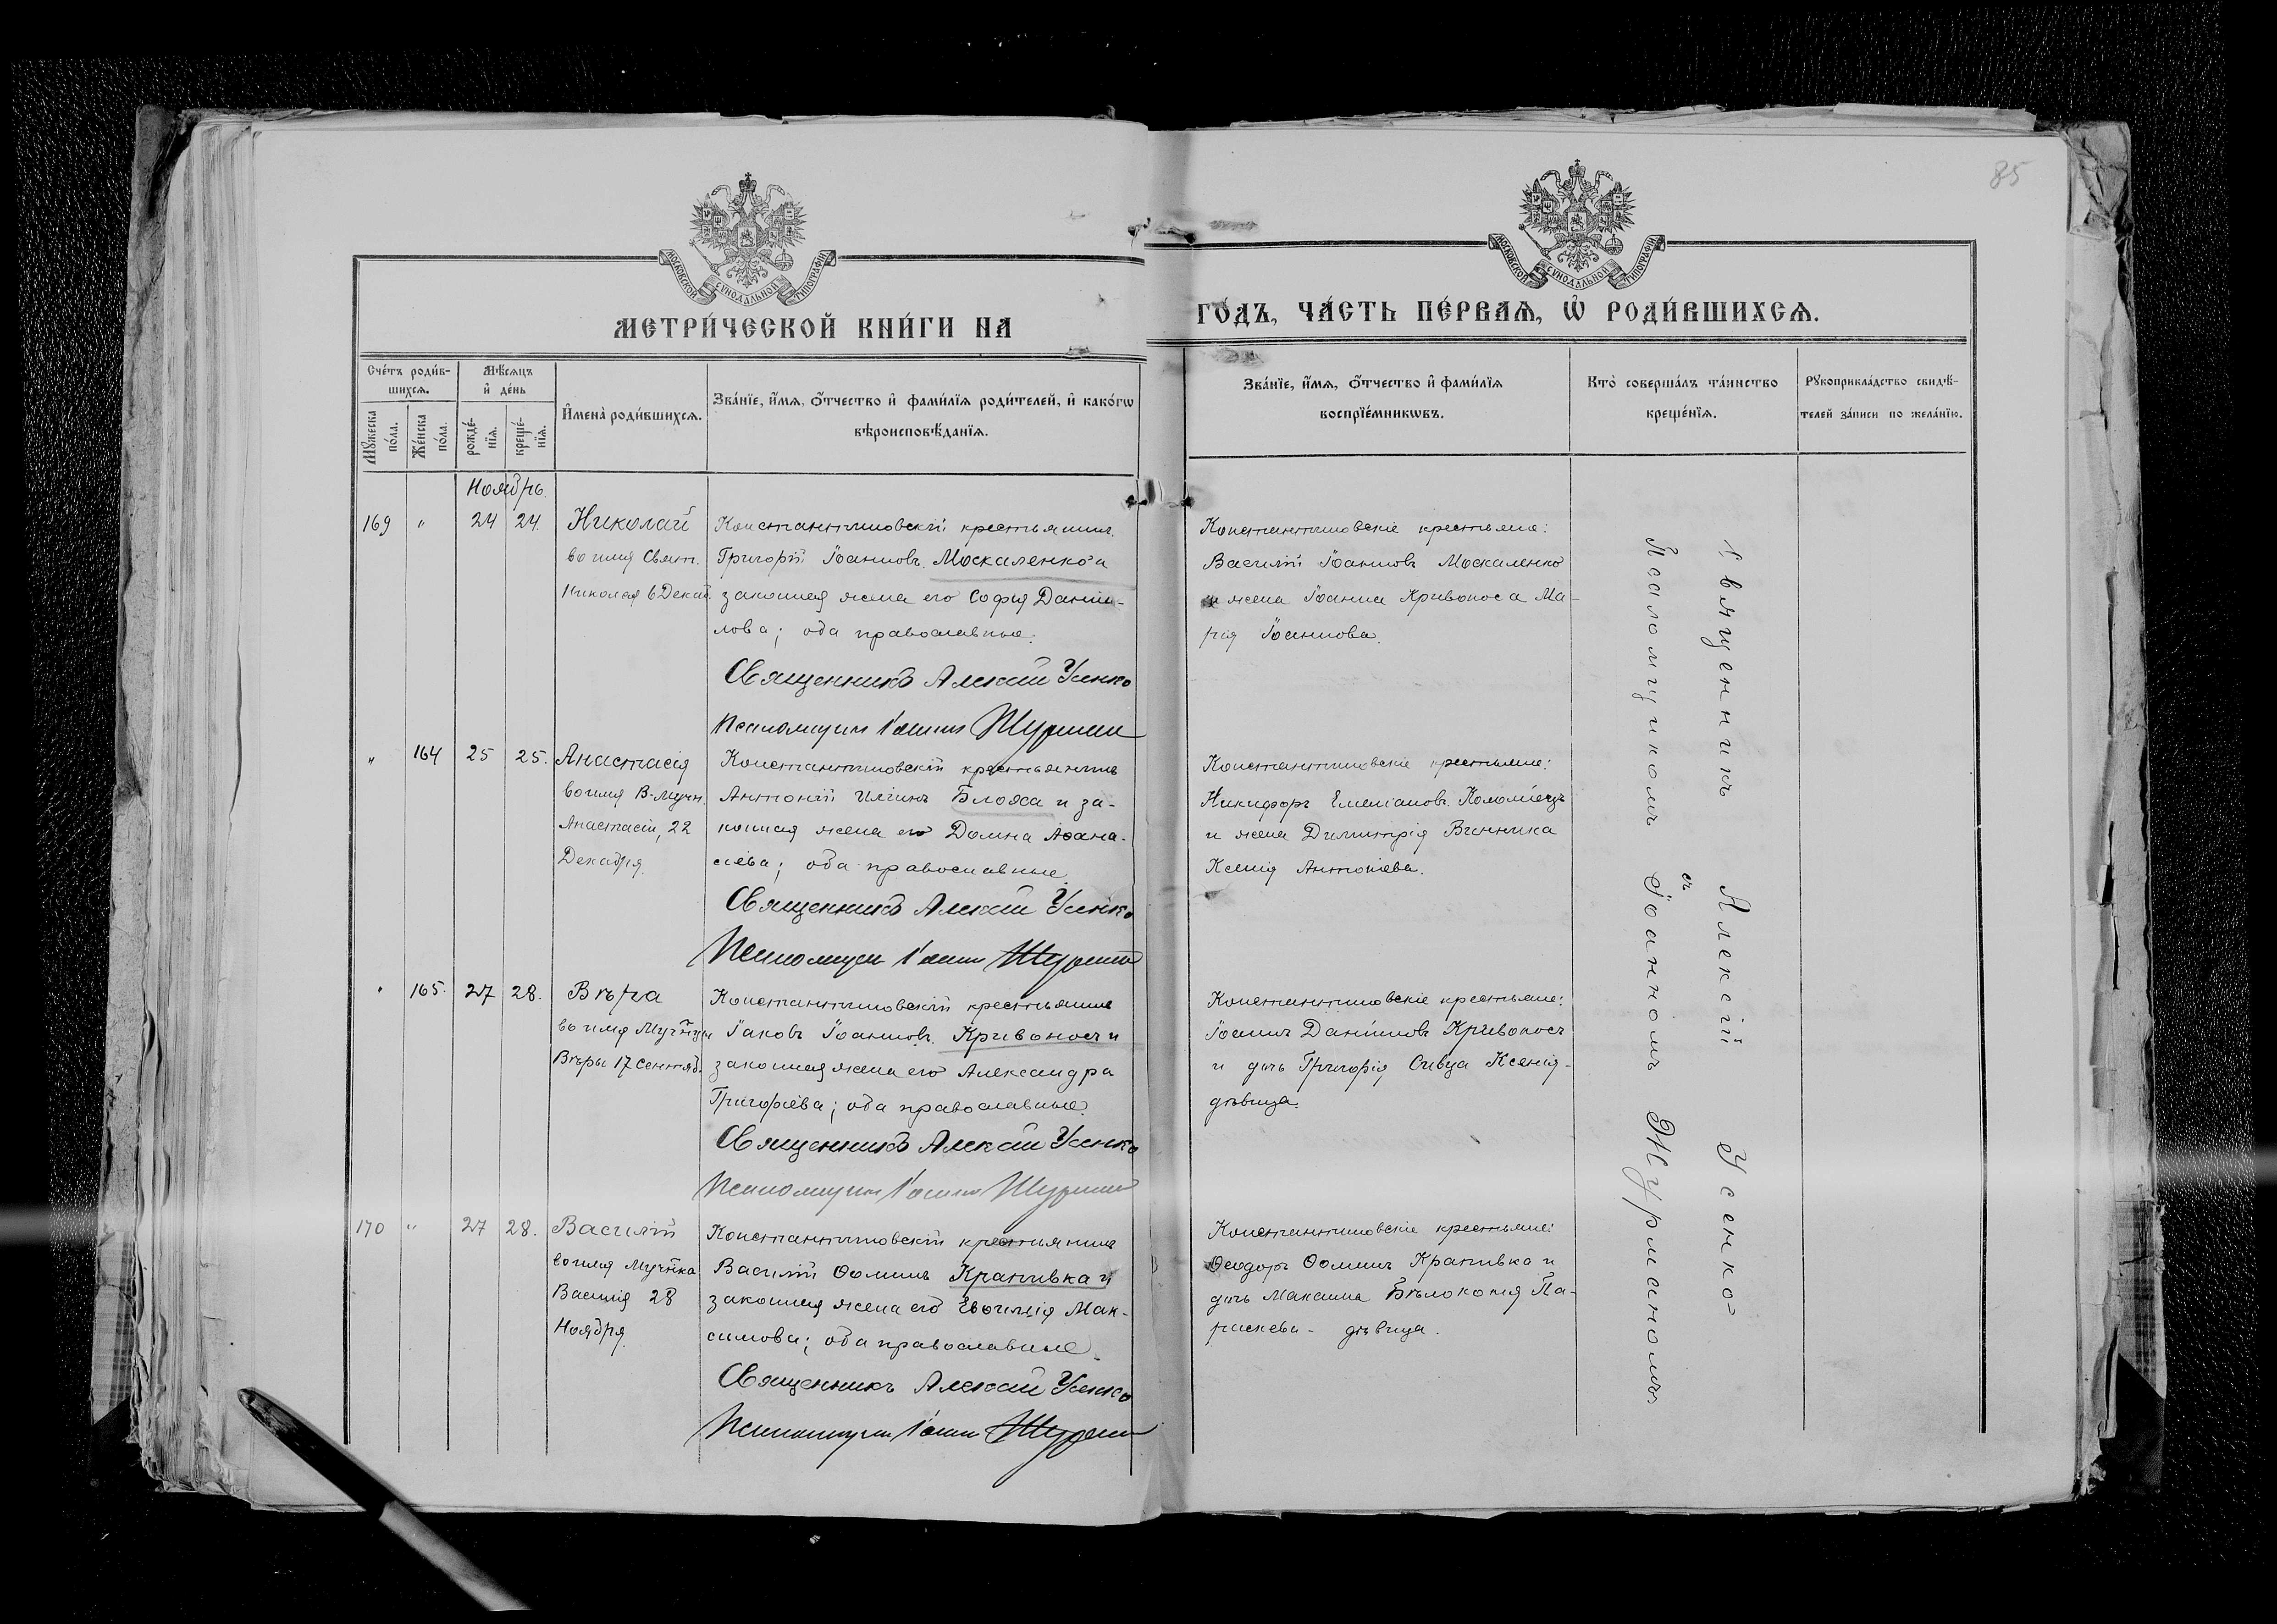 85
МОСКОВСКОЙ СѴНОДАЛЬНОЙ ТИПОГРАФІИ
МОСКОВСКОЙ СѴНОДАЛЬНОЙ ТИПОГРАФІИ
МЕТРИ́ЧЕСКОЙ КНИ́ГИ НА ГО́ДЪ, ЧА́СТЬ ПЕ́РВАѦ, Ѿ РОДИ́ВШИХСѦ.
Сче́тъ роди́в-
шихсѧ.
Мꙋ́жеска
по́ла.
Же́нска
по́ла.
Мѣ́сѧцъ
и҆ де́нь
рожде́-
нїѧ.
креще́-
нїѧ.
И҆мена̀ роди́вшихсѧ.
Зва́нїе, и҆́мѧ, ѻ҆́тчество и҆ фами́лїѧ роди́телей, и҆ како́гѡ
вѣроисповѣ́данїѧ.
Зва́нїе, и҆́мѧ, ѻ҆́тчество и҆ фами́лїѧ
воспрїе́мникѡвъ.
Кто̀ соверша́лъ та́инство
креще́нїѧ.
Рꙋкоприкла́дство свидѣ́-
телей за́писи по жела́нїю.
Ноябрь.
169 " 24 24. Николай
во имя Свят.
Николая 6 Декаб.
Константиновскій крестьянинъ
Григорій Іоанновъ Москаленко и
законная жена его Софія Дании-
лова; оба православные.
Священникъ Алексій Усенко
Псаломщикъ Іоаннъ Журманъ
Константиновскіе крестьяне:
Василій Іоанновъ Москаленко
и жена Іоанна Кривоноса Ма-
рія Іоаннова.
" 164 25 25. Анастасія
во имя В-Мучн.
Анастасіи, 22
Декабря.
Константиновскій крестьянинъ
Антоній Илiинъ Блоха и за-
конная жена его Домна Аѳана-
сіева; оба православные.
Священникъ Алексій Усенко
Псаломщикъ Іоаннъ Журманъ
Константиновскіе крестьяне:
Никифоръ Емеліановъ Коломіецъ
и жена Димитрія Винника
Ксенія Антоніева.
" 165. 27 28. Вѣра
во имя Муч-цы
Вѣры 17 Сентяб.
Константиновскій крестьянинъ
Іаковъ Іоанновъ Кривоносъ и
законная жена его Александра
Григоріева; оба православные.
Священникъ Алексій Усенко
Псаломщикъ Іоаннъ Журманъ
Константиновскіе крестьяне:
Іоаннъ Даніиловъ Кривоносъ
и дочь Григорія Сивца Ксенія-
дѣвица.
170 " 27 28. Василій
во имя Муч-ка
Василія 28
Ноября.
Константиновскій крестьянинъ
Василій Ѳоминъ Крапивка и
законная жена его Евѳимія Мак-
симова; оба православные.
Священникъ Алексій Усенко
Псаломщикъ Іоаннъ Журманъ
Константиновскіе крестьяне:
Ѳеодоръ Ѳоминъ Крапивка и
дочь Максима Бѣлоконя Па-
раскева - дѣвица.
Священникъ Алексій Усенко
съ
Псаломщикомъ Іоанномъ Журманомъ